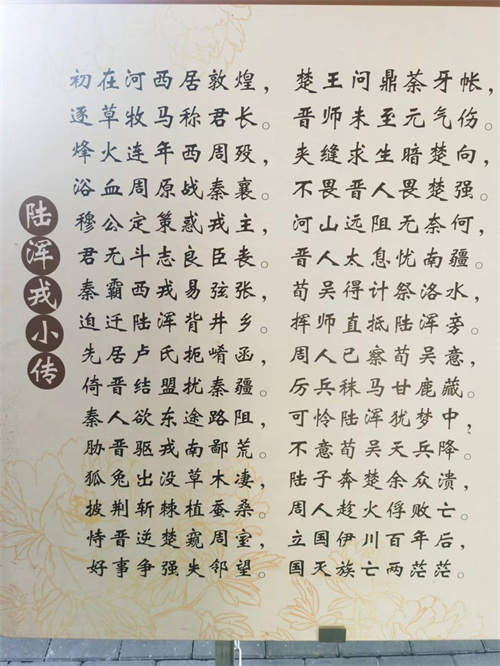 陆浑戎小传
初在河西居敦煌，
逐草牧马称君长。
烽火连年西周殁，
浴血周原战秦襄。
穆公定策惑戎主，
君无斗志良臣丧。
秦霸西戎易弦张，
迫迁陆浑背井乡。
先居卢氏扼崤函，
倚晋结盟扰秦疆。
秦人欲东途路阻，
胁晋驱戎南鄙荒。
狐兔出没草木凄，
披荆斩棘植蚕桑。
恃晋逆楚窥周室，
好事争强失邻望。
楚王问鼎荼牙帐，
晋师未至元气伤。
夹缝求生暗楚向，
不畏晋人畏楚强。
河山远阻无奈何，
晋人太息忧南疆。
荀吴得计祭洛水，
挥师直抵陆浑旁。
周人已察荀吴意，
厉兵秣马甘鹿藏。
可怜陆浑犹梦中，
不意荀吴天兵降。
陆子奔楚余众溃，
周人趁火俘败亡。
立国伊川百年后，
国灭族亡两茫茫。